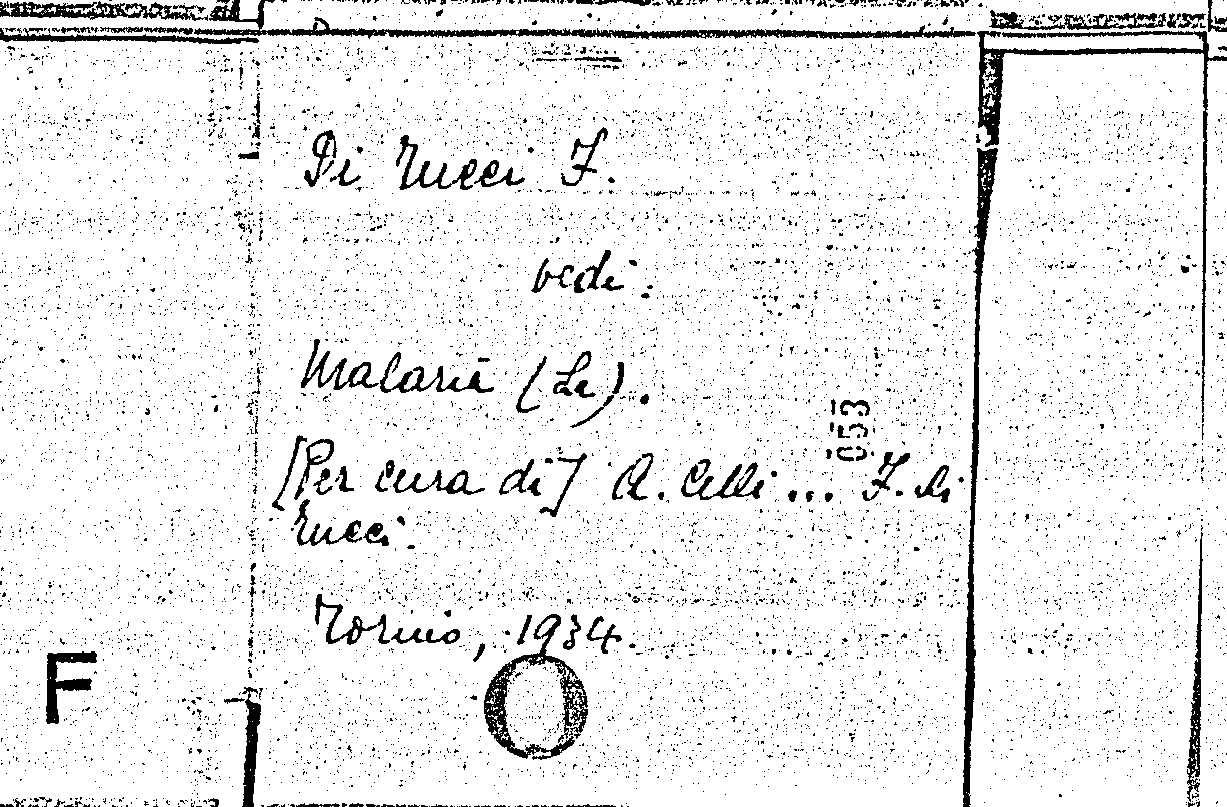 Di Tucci F.
vedi:
Malaria (La).
[Per cura di] A. Celli ... F. Di
Tucci.
Torino, 1934.
053
F